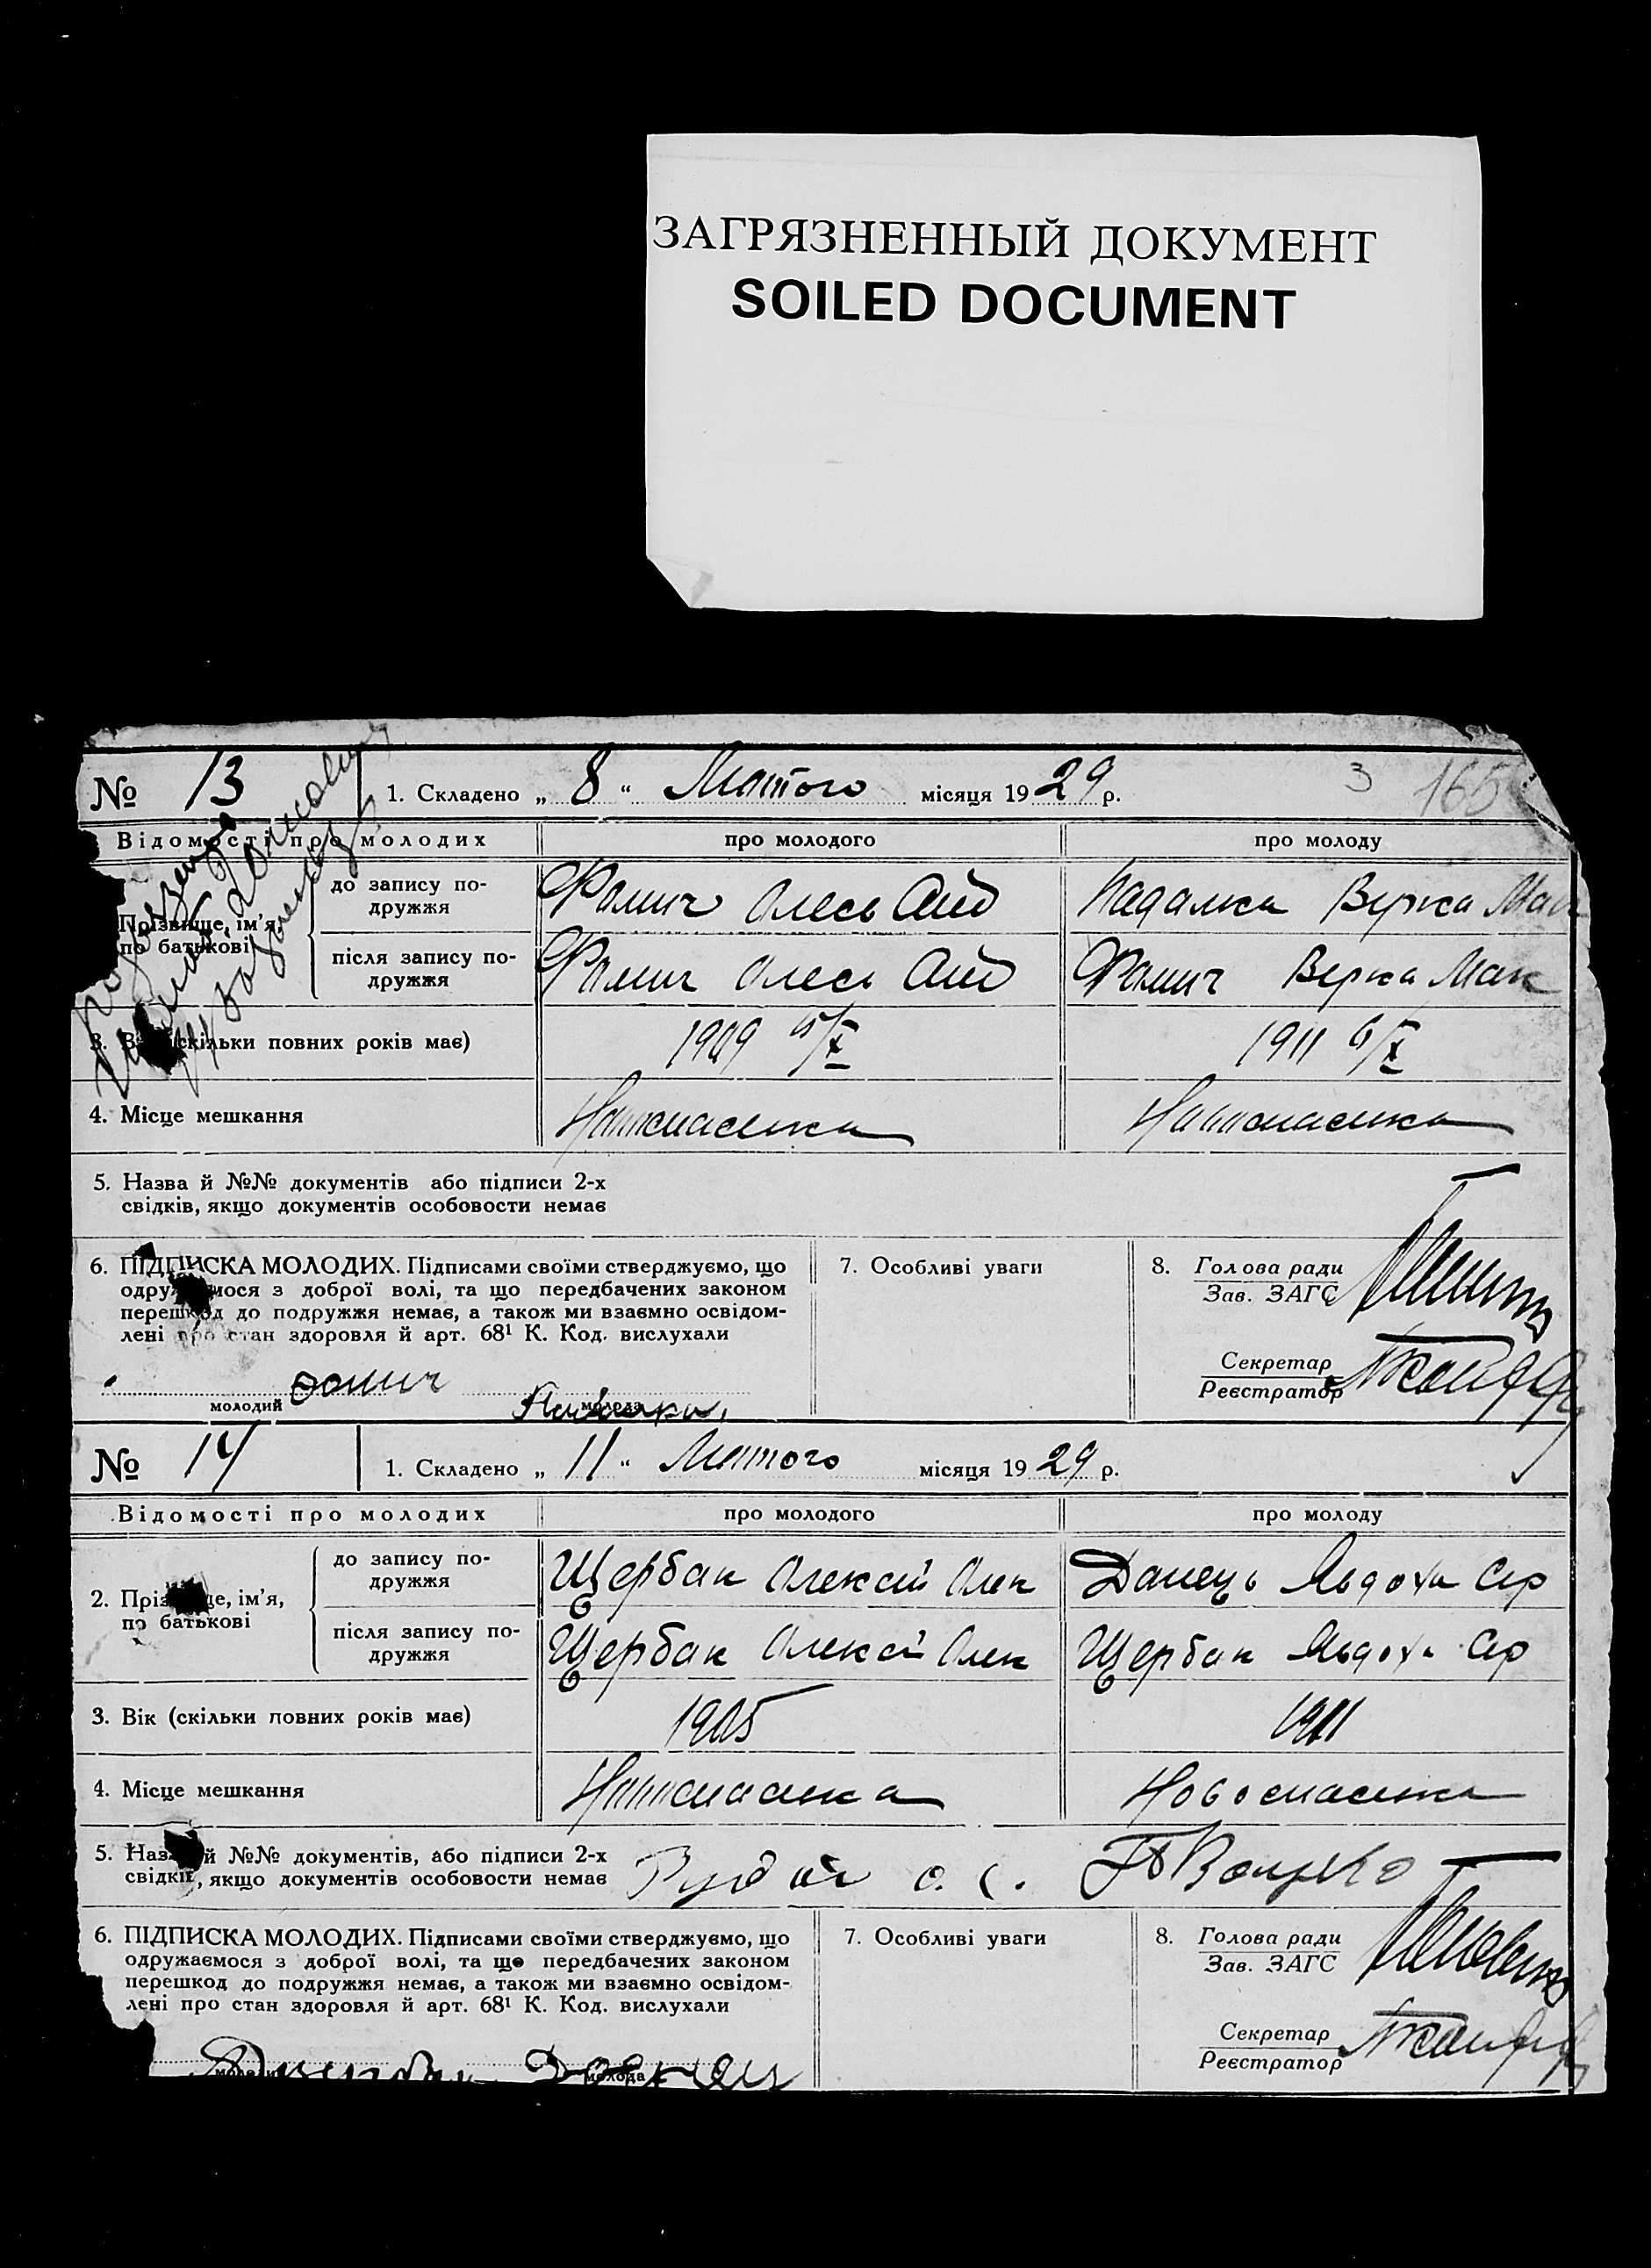 ЗАГРЯЗНЕННЫЙ ДОКУМЕНТ
SOILED DOCUMENT
№ 13 1. Складено „ 8 “ Лютого місяця 19 29 р. 3 165
Відомості про молодих про молодого про молоду
до запису по-
дружжя
Фомич Олесь Анд
Падалка Вірка Мак
Прізвище, ім'я,
по батькові
після запису по-
дружжя
Фомич Олесь Анд
Фомич Вірка Мак
3. (скільки повних років має) 1909 1911
4. Місце мешкання
5. Назва й №№ документів або підписи 2-х
свідків, якщо документів особовости немає
6. ПІДПИСКА МОЛОДИХ. Підписами своїми стверджуємо, що
одружаємося з доброї волі, та що передбачених законом
перешкод до подружжя немає, а також ми взаємно освідом-
лені про стан здоровля й арт. 68¹ К. Код. вислухали
Фомич
молодий молода
7. Особливі уваги
8. Голова ради
Зав. ЗАГС
Секретар
Реєстратор
№ 14 1. Складено „ 11 “ Лютого місяця 19 29 р.
Відомості про молодих про молодого про молоду
до запису по-
дружжя
Щербак Олексій Олек
Данець Явдоха Сер
2. Прізвище, ім'я,
по батькові
після запису по-
дружжя
Щербак Олексій Олек
Щербак Явдоха Сер
3. Вік (скільки повних років має) 1905 1911
4. Місце мешкання Новоспаська
5. Назва й №№ документів, або підписи 2-х
свідків, якщо документів особовости немає
6. ПІДПИСКА МОЛОДИХ. Підписами своїми стверджуємо, що
одружаємося з доброї волі, та що передбачених законом
перешкод до подружжя немає, а також ми взаємно освідом-
лені про стан здоровля й арт. 68¹ К. Код. вислухали
молодий молода
7. Особливі уваги
8. Голова ради
Зав. ЗАГС
Секретар
Реєстратор